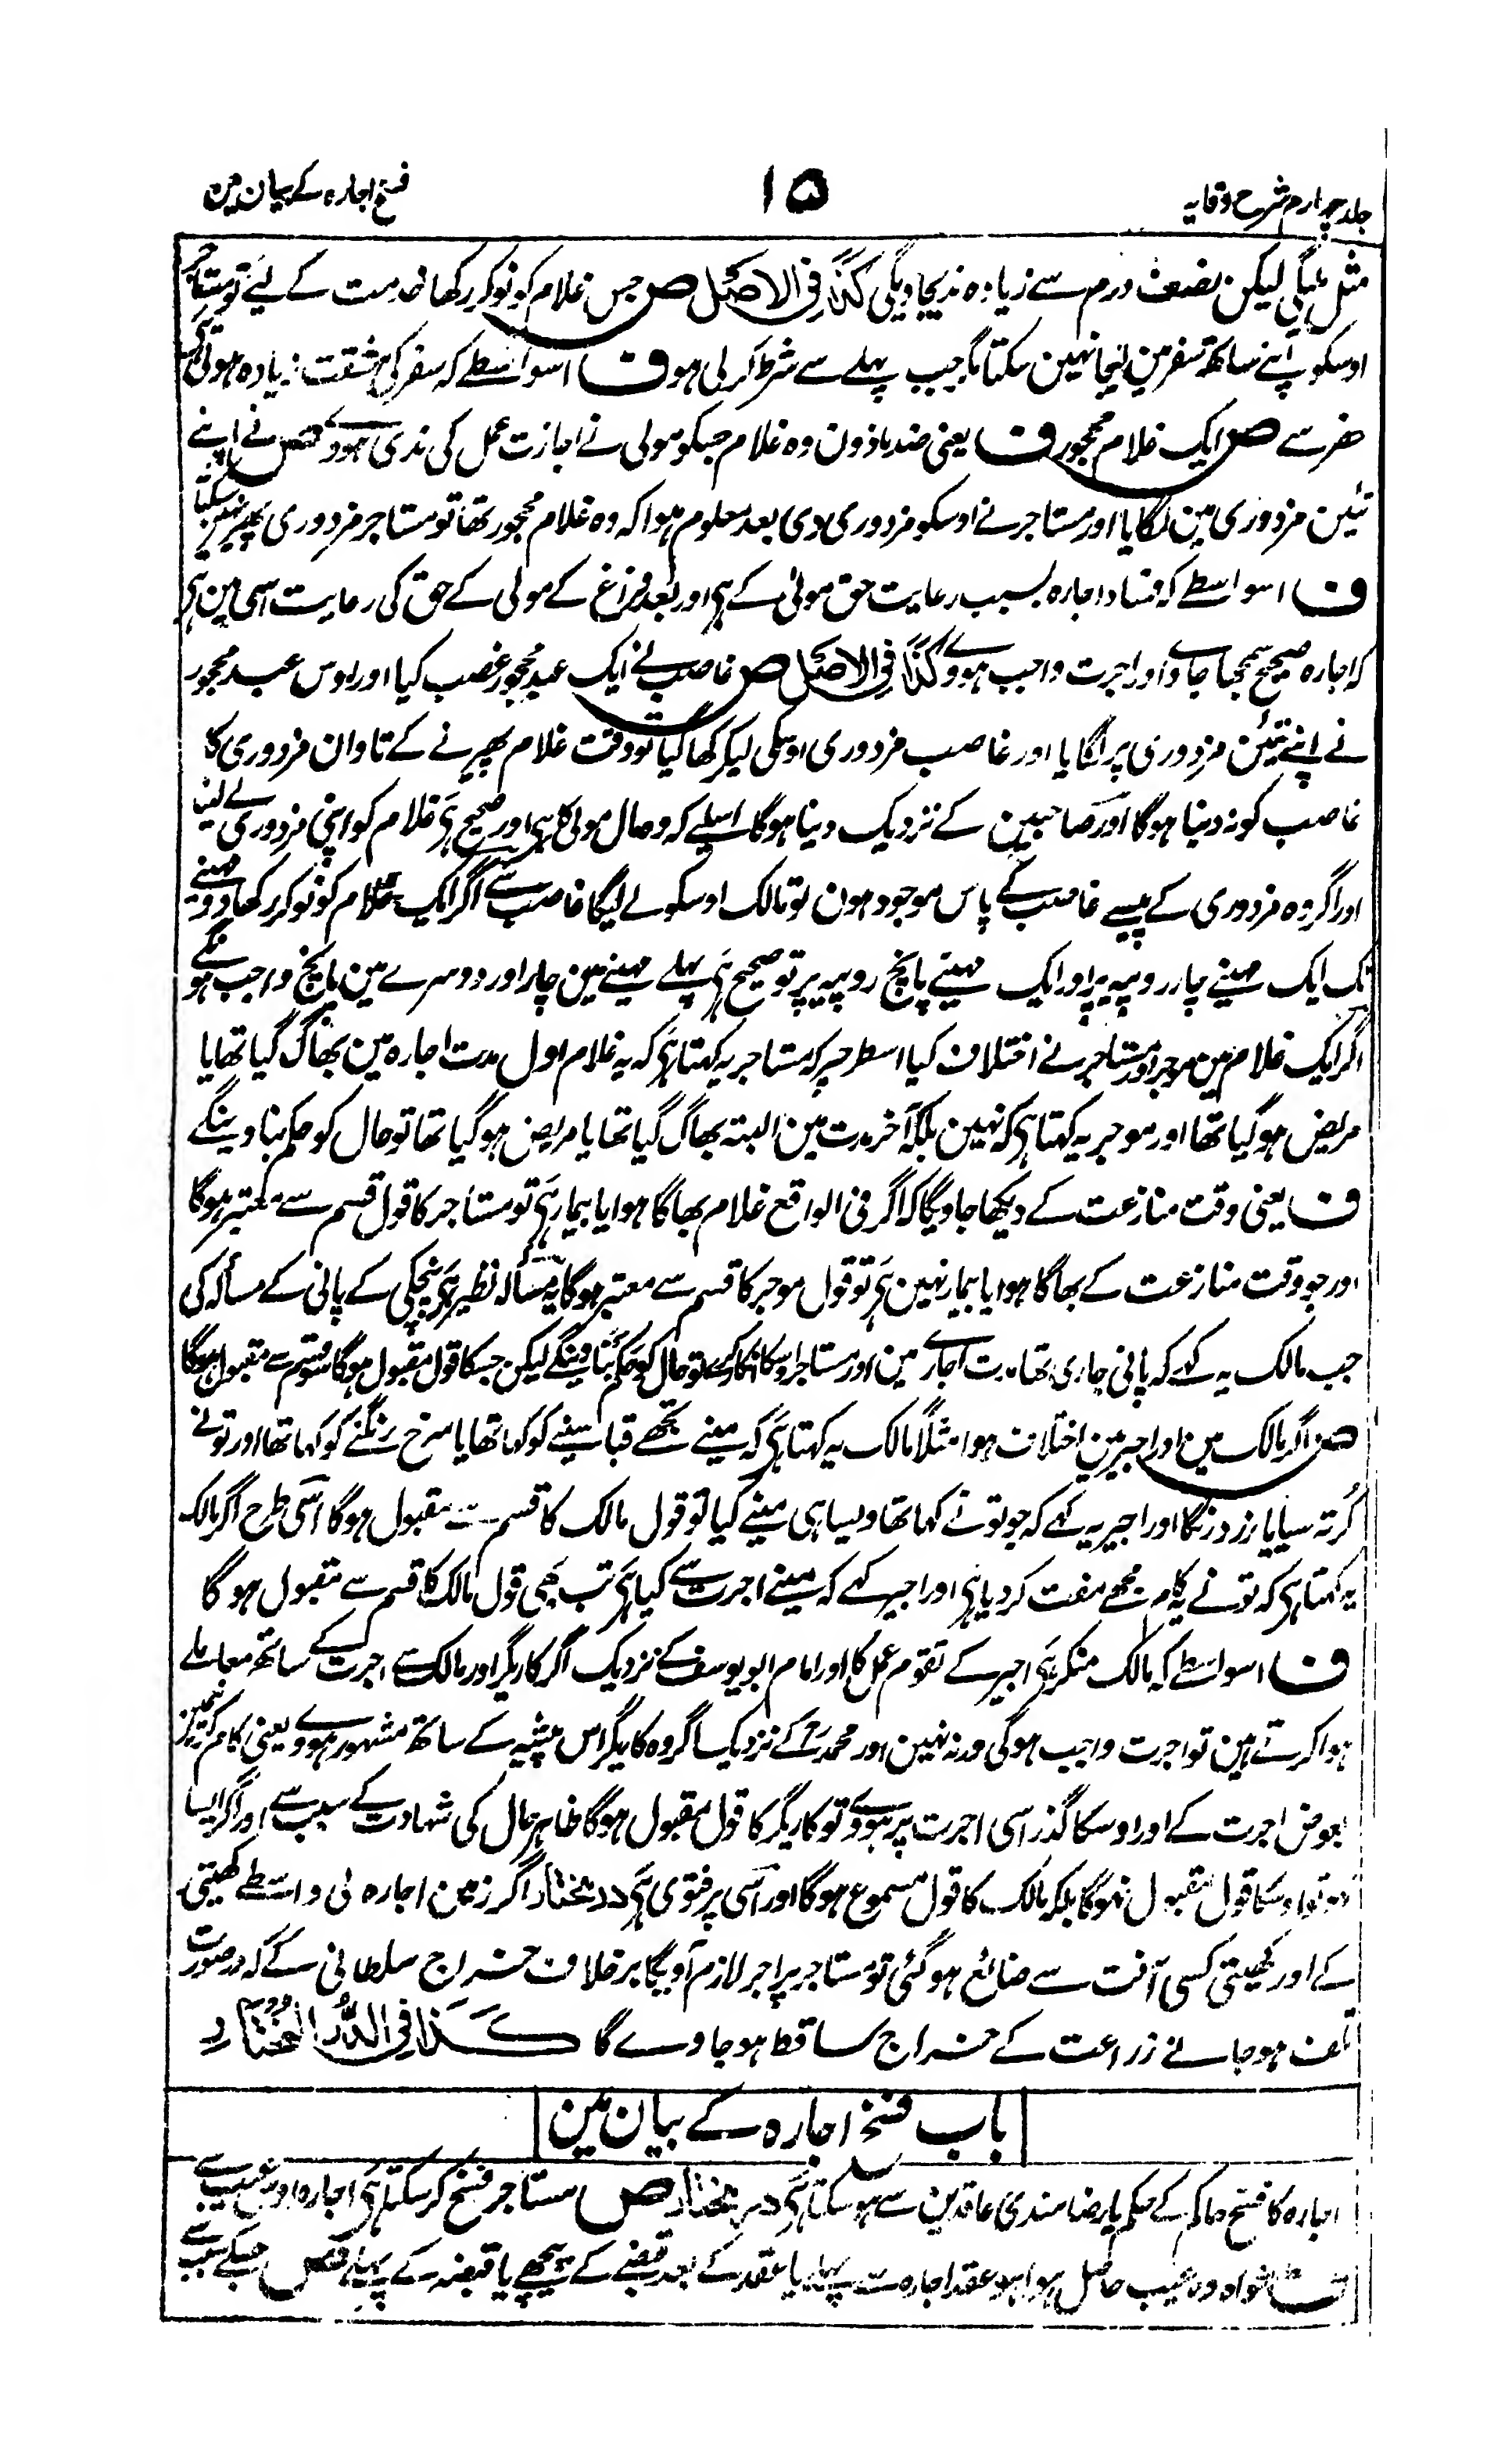 جلد چہارم شرح وقایہ
۱۵
فسخ اجارہ کے بیان مین
مثل ملیگی لیکن نصف درم سے زیادہ ندیجاویگی کذا فی الاصل ص جس غلام کو نوکر رکھا خدمت کے لیے تو مستاجر
اوسکو اپنے ساتھ سفر مین لیجا نہین سکتا مگر جب پہلے سے شرط کر لی ہو ف اسواسطے کہ سفر کی مشقت زیادہ ہوتی ہی
حضر سے ص ایک غلام محجور ف یعنی ضد ماذون وہ غلام جسکو مولی نے اجازت عمل کی ندی ہووے ص نے اپنے
تئین مزدوری مین لگایا اور مستاجر نے اوسکو مزدوری دی بعد معلوم ہوا کہ وہ غلام محجور تھا تو مستاجر مزدوری پھیر نہین سکتا
ف اسواسطے کہ فساد اجارہ بسبب رعایت حق مولیٰ کے ہی اور بعد فراغ کے مولی کے حق کی رعایت اسی مین ہی
کہ اجارہ صحیح سمجھا جاوے اور اجرت واجب ہووے کذا فی الاصل ص غاصب نے ایک عبد محجور غصب کیا اور اوس عبد محجور
نے اپنے تئین مزدوری پر لگایا اور غاصب مزدوری اوسکی لیکر کھا گیا تو وقت غلام پھیرنے کے تاوان مزدوری کا
غاصب کو نہ دینا ہوگا اور صاحبین کے نزدیک دینا ہوگا اسلیے کہ وہ مال مولی کا ہی اور صحیح ہی غلام کو اپنی مزدوری لے لینا
اور اگر وہ مزدوری کے پیسے غاصب کے پاس موجود ہون تو مالک اوسکو لے لیگا غاصب سے اگر ایک غلام کو نوکر رکھا دو مہینے
تک ایک مہینے چار روپیہ پر اور ایک مہینے پانچ روپیہ پر تو صحیح ہی پہلے مہینے مین چار اور دوسرے مین پانچ واجب ہونگے
اگر ایک غلام مین موجر اور مستاجر نے اختلاف کیا اسطرح پر کہ مستاجر یہ کہتا ہی کہ یہ غلام اول مدت اجارہ مین بھاگ گیا تھا یا
مریض ہو گیا تھا اور موجر یہ کہتا ہی کہ نہین بلکہ آخر مدت مین البتہ بھاگ گیا تھا یا مریض ہو گیا تھا تو حال کو حکم بنا دینگے
ف یعنی وقت منازعت کے دیکھا جاویگا کہ اگر فی الواقع غلام بھاگا ہوا یا بیمار ہی تو مستاجر کا قول قسم سے معتبر ہوگا
اور جو وقت منازعت کے بھاگا ہوا یا بیمار نہین ہی تو قول موجر کا قسم سے معتبر ہوگا یہ مسألہ نظیر ہی پنچکی کے پانی کے مسألہ کی
جب مالک یہ کہے کہ پانی جاری تھا مدت اجارے مین اور مستاجر اوسکا انکار کرے تو حال کو حکم بنا دینگے لیکن جسکا قول مقبول ہوگا قسم سے مقبول ہوگا
ص اگر مالک مین اور اجیر مین اختلاف ہوا مثلاً مالک یہ کہتا ہی کہ مینے تجھے قبا سینے کو کہا تھا یا سرخ رنگنے کو کہا تھا اور تو نے
کرتہ سیا یا زرد رنگا اور اجیر یہ کہے کہ جو تو نے کہا تھا ویسا ہی مینے کیا تو قول مالک کا قسم سے مقبول ہوگا اسی طرح اگر مالک
یہ کہتا ہی کہ تو نے یہ کام مجھے مفت کر دیا ہی اور اجیر کہے کہ مینے اجرت سے کیا ہی تب بھی قول مالک کا قسم سے مقبول ہو گا
ف اسواسطے کہ مالک منکر ہی اجیر کے تقوم عمل کا اور امام ابو یوسف کے نزدیک اگر کاریگر اور مالک سے اجرت کے ساتھ معاملے
ہوا کرتے ہین تو اجرت واجب ہوگی ورنہ نہین اور محمد رح کے نزدیک اگر وہ کاریگر اس پیشہ کے ساتھ مشہور ہووے یعنی کام کرنے مین
بعوض اجرت کے اور اوسکا گذر اسی اجرت پر ہووے تو کاریگر کا قول مقبول ہوگا ظاہر حال کی شہادت کے سبب سے اور اگر ایسا
نہو تو اوسکا قول مقبول نہوگا بلکہ مالک کا قول مسموع ہوگا اور اسی پر فتوی ہی در مختار اگر زمین اجارہ لی واسطے کھیتی
کے اور کھیتی کسی آفت سے ضائع ہو گئی تو مستاجر پر اجر لازم آویگا برخلاف خراج سلطانی کے کہ در صورت
تلف ہو جانے زراعت کے خراج ساقط ہو جاوے گا کذا فی الدر المختار
باب فسخ اجارہ کے بیان مین
اجارہ کا فسخ حاکم کے حکم یا رضامندی عاقدین سے ہو سکتا ہی در مختار ص مستاجر فسخ کر سکتا ہی اجارہ اوس عیب سے
ف خواہ وہ عیب حاصل ہوا ہو عقد اجارہ سے پہلے یا عقد کے بعد قبضے کے پیچھے یا قبضہ کے پہلے ص جسکے سبب سے